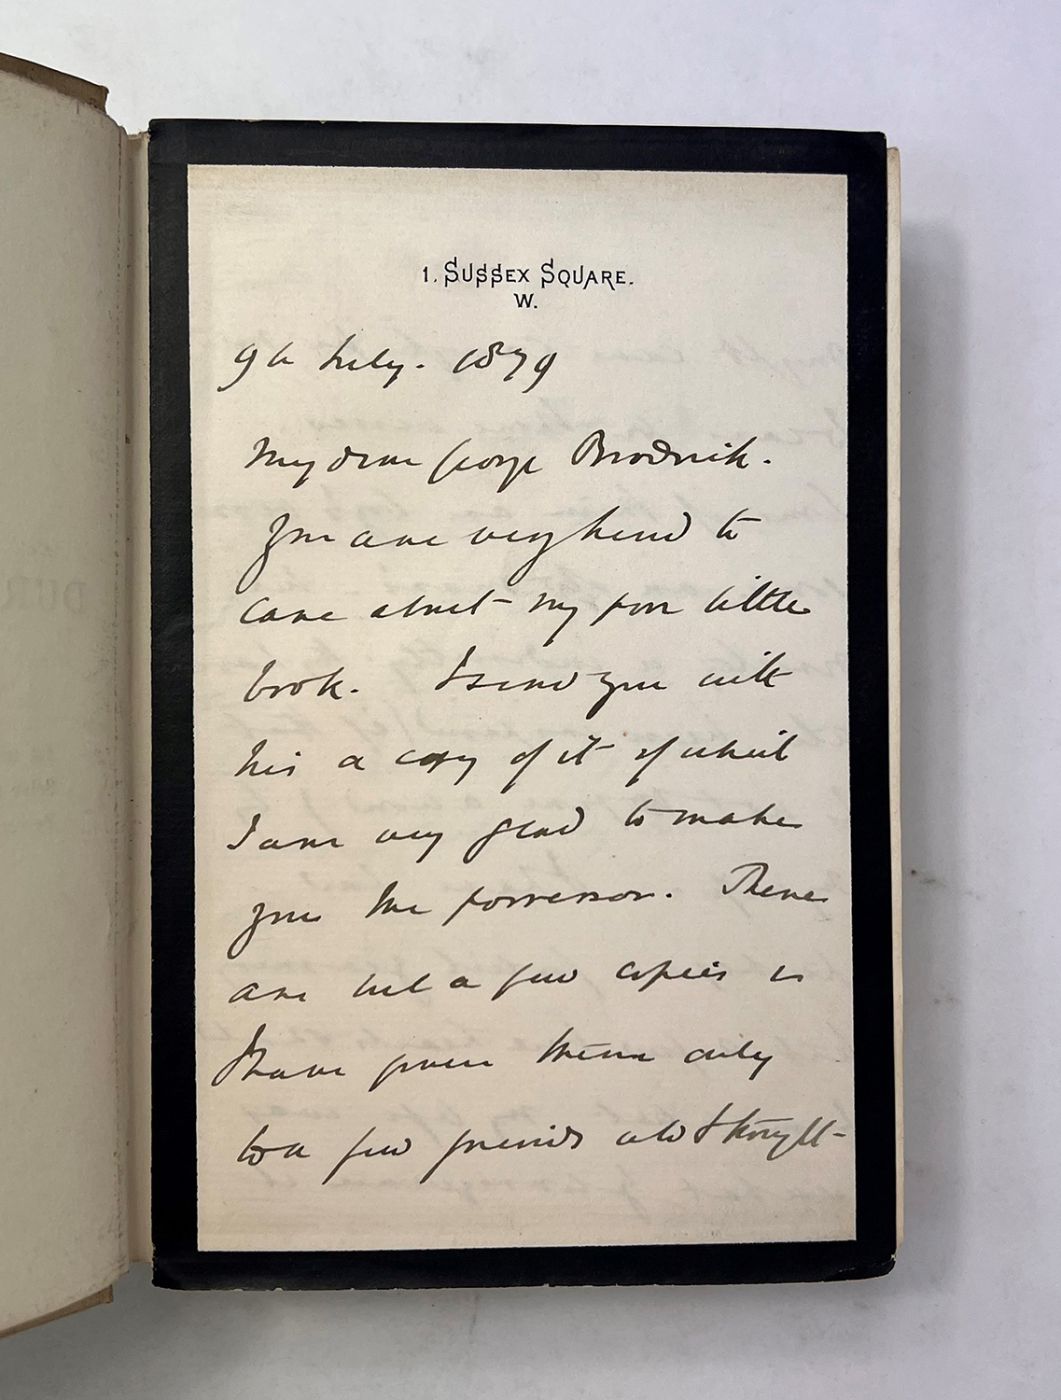 1. SUSSEX SQUARE.
W.
9th July. 1879
My dear George Brodrick.
You are very kind to
care about my poor little
book. I send you with
this a copy of it of which
I am very glad to make
you the possessor. There
are but a few copies as
I have given them only
to a few friends who I thought